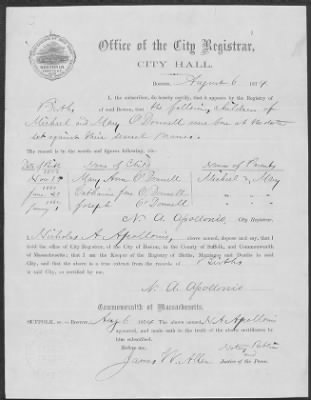 Office of the City Registrar,
CITY HALL.
Boston, August 6 1874
I, the subscriber, do hereby certify, that it appears by the Registry of
Births
of said Boston, that the following children of
Michael and Mary O'Donnell were born at the date
set against their several names.
The record is in the words and figures following, etc:
Date of Birth Name of Child Names of Parents
Nov Mary Ann O'Donnell Michael & Mary
June Catharine Jane O'Donnell
January Joseph O'Donnell
N. A. Apollonio City Registrar.
Nicholas A. Apollonio, above named, depose and say, that I
hold the office of City Registrar, of the City of Boston, in the County of Suffolk, and Commonwealth
of Massachusetts; that I am the Keeper of the Registry of Births, Marriages and Deaths in said
City, and that the above is a true extract from the records of Births
in said City, as certified by me.
N. A. Apollonio
Commonwealth of Massachusetts.
SUFFOLK, ss.—Boston, Aug 6 1874 The above named N. A. Apollonio
appeared, and made oath to the truth of the above certificates by
him subscribed.
Before me,
Notary Public
and
James W. Allen Justice of the Peace.